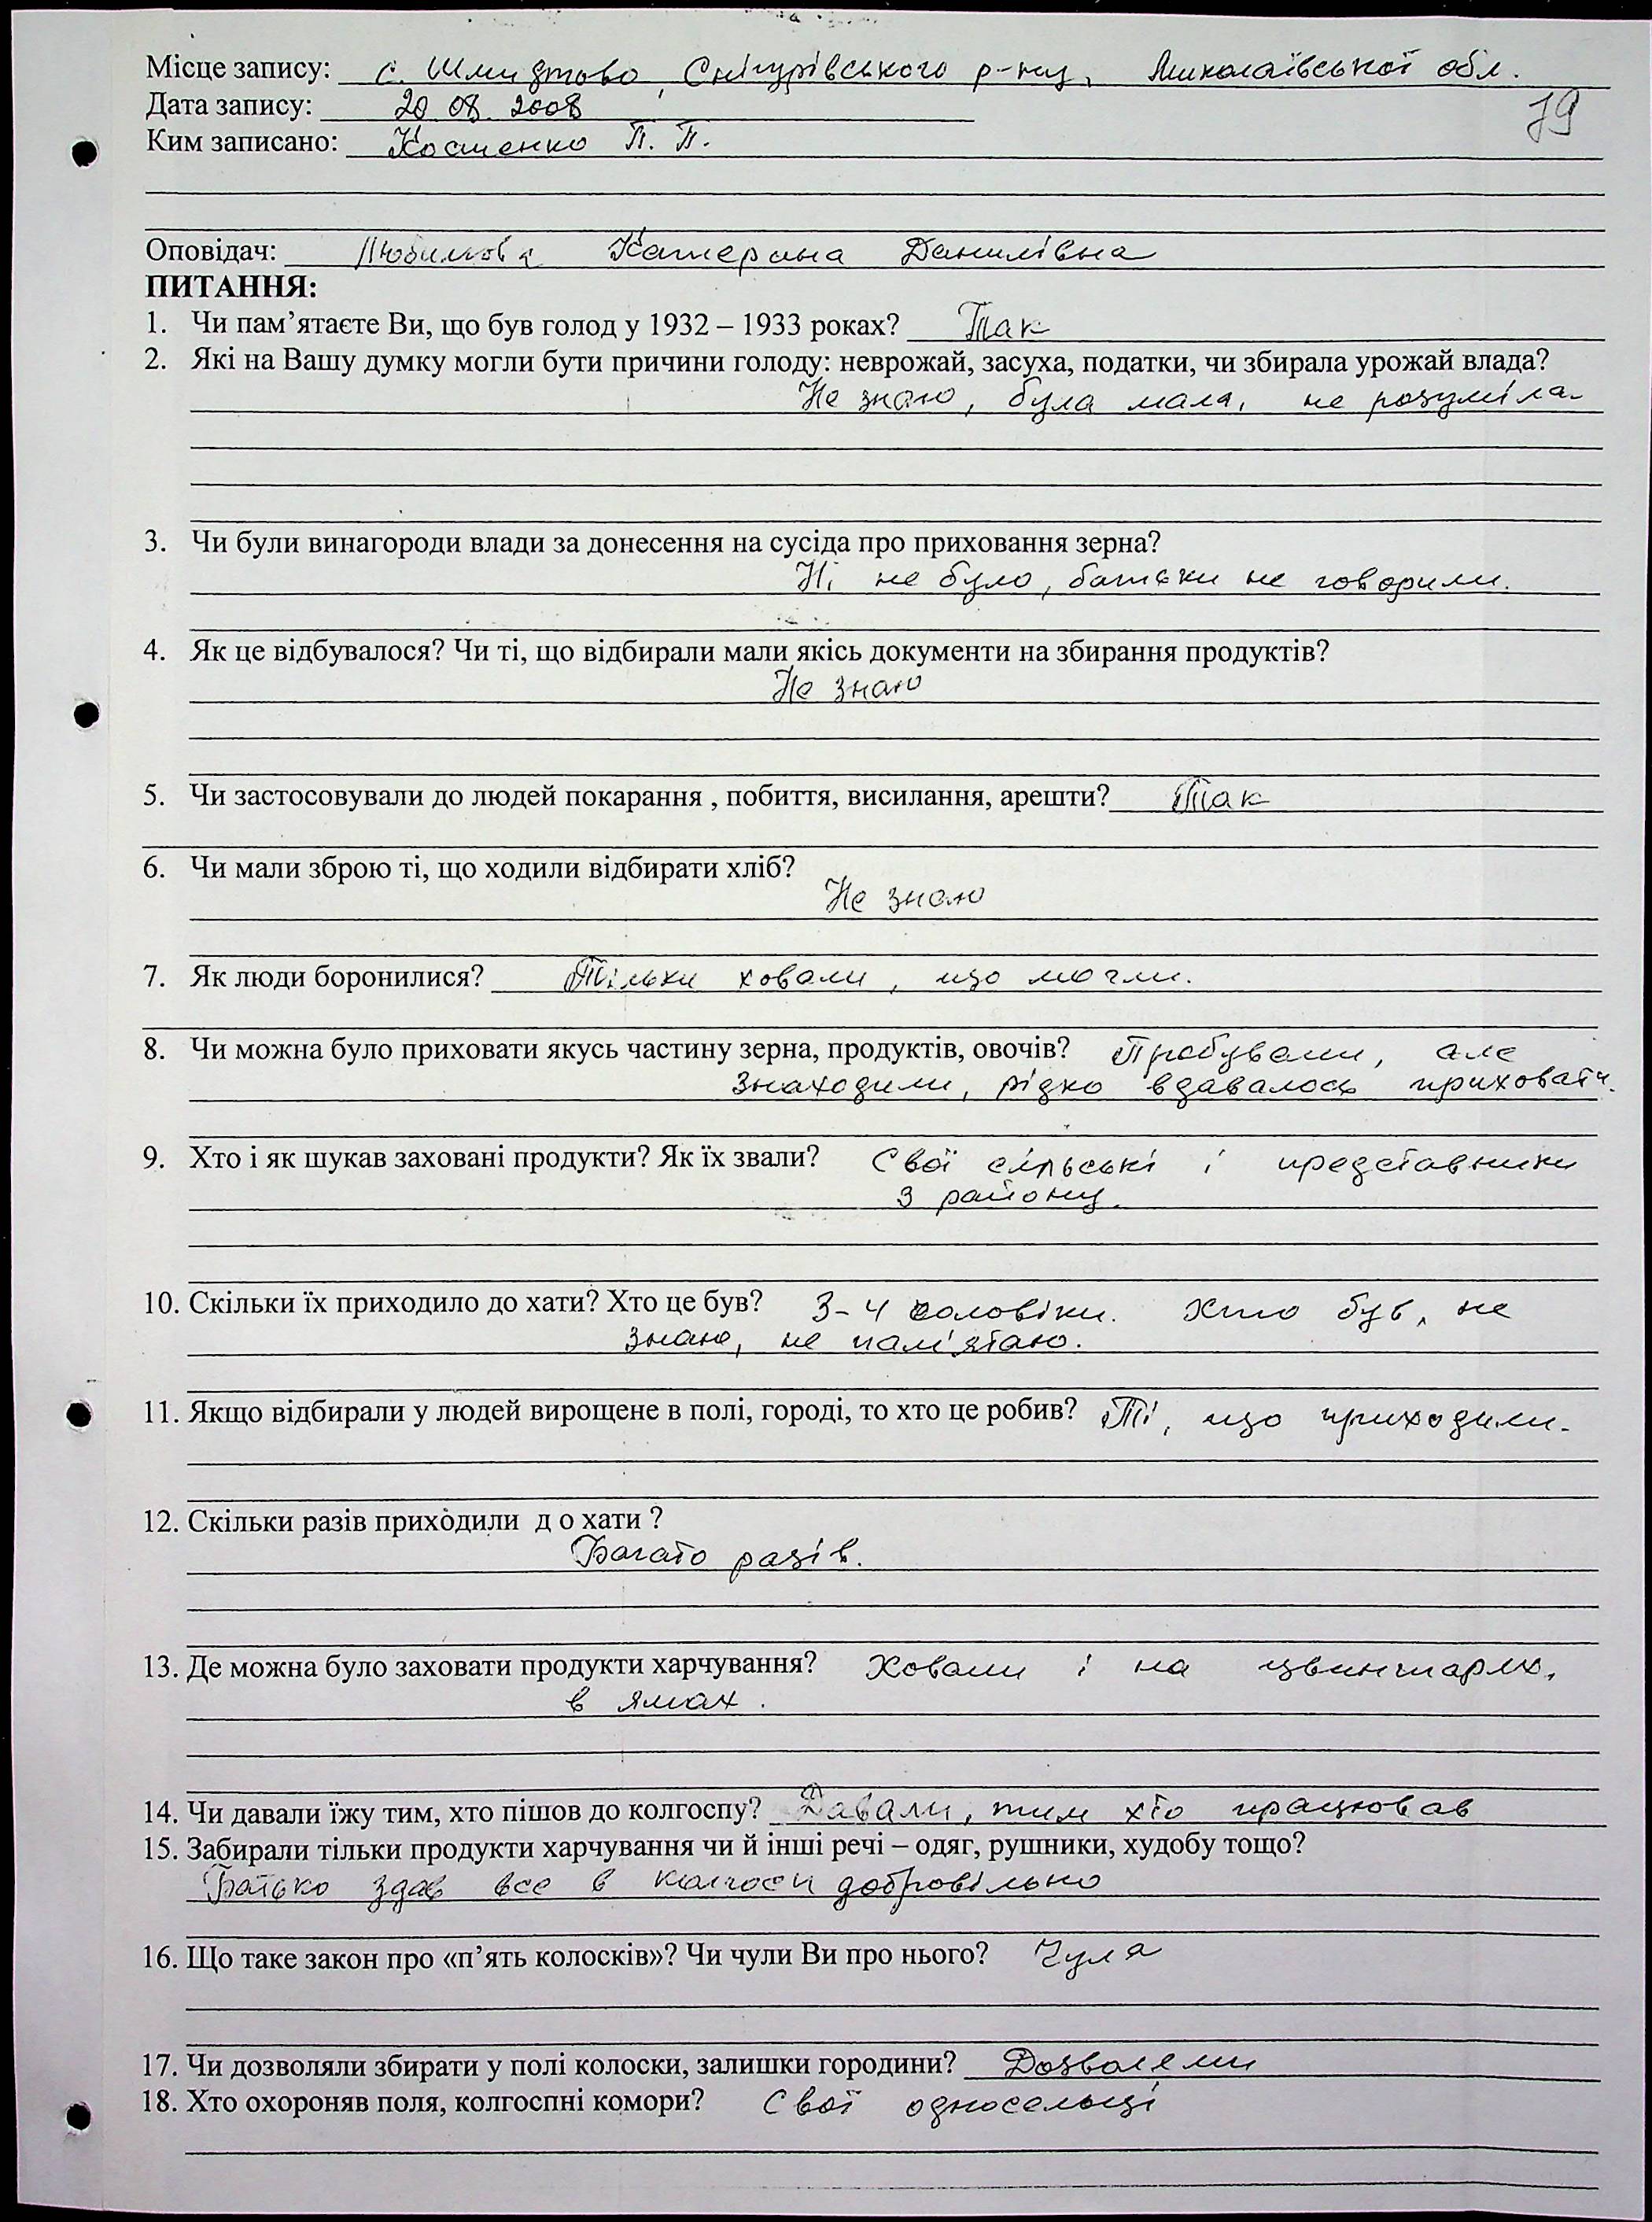 Місце запису: с. Шмидтово, Снігурівського р-ну, Миколаївської обл.
Дата запису: 20.08.2008
79
Ким записано: Костенко П. П.
Оповідач: Любимова Катерина Данилівна
ПИТАННЯ:
1. Чи пам’ятаєте Ви, що був голод у 1932 – 1933 роках? Так
2. Які на Вашу думку могли бути причини голоду: неврожай, засуха, податки, чи збирала урожай влада?
Не знаю, була мала, не розуміла.
3. Чи були винагороди влади за донесення на сусіда про приховання зерна?
Ні не було, батьки не говорили.
4. Як це відбувалося? Чи ті, що відбирали мали якісь документи на збирання продуктів?
Не знаю
5. Чи застосовували до людей покарання , побиття, висилання, арешти? Так
6. Чи мали зброю ті, що ходили відбирати хліб?
Не знаю
7. Як люди боронилися? Тільки ховали, що могли.
8. Чи можна було приховати якусь частину зерна, продуктів, овочів? Пробували, але
знаходили, рідко вдавалось приховати.
9. Хто і як шукав заховані продукти? Як їх звали? Свої сільські і представники
з району.
10. Скільки їх приходило до хати? Хто це був? 3-4 чоловіки. Хто був, не
знаю, не пам'ятаю.
11. Якщо відбирали у людей вирощене в полі, городі, то хто це робив? Ті, що приходили.
12. Скільки разів приходили д о хати ?
Багато разів.
13. Де можна було заховати продукти харчування? Ховали і на цвинтарях,
в ямах.
14. Чи давали їжу тим, хто пішов до колгоспу? Давали, тим хто працював
15. Забирали тільки продукти харчування чи й інші речі – одяг, рушники, худобу тощо?
Батько здав все в колгосп добровільно
16. Що таке закон про «п’ять колосків»? Чи чули Ви про нього? Чула
17. Чи дозволяли збирати у полі колоски, залишки городини? Дозволяли
18. Хто охороняв поля, колгоспні комори? Свої односельці